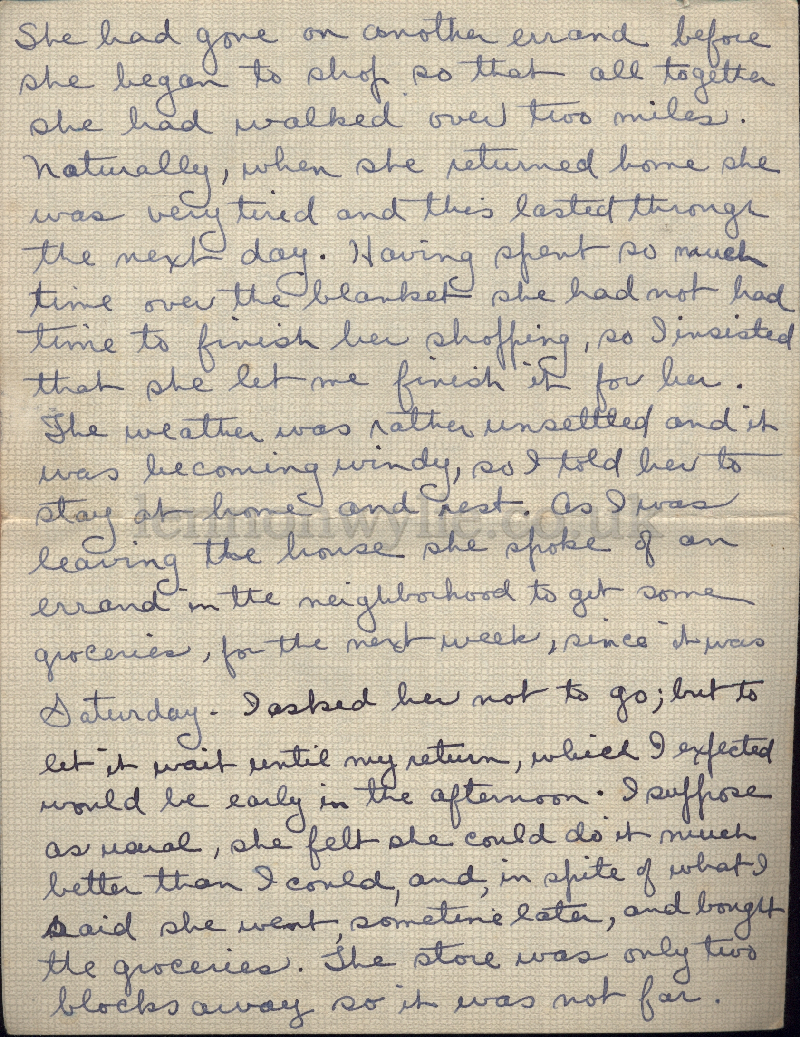 She had gone on another errand before
she began to shop so that all together
she had walked over two miles.
Naturally, when she returned home she
was very tired and this lasted through
the next day. Having spent so much
time over the blanket she had not had
time to finish her shopping, so I insisted
that she let me finish it for her.
The weather was rather unsettled and it
was becoming windy, so I told her to
stay at home and rest. As I was
lennonwylie.co.uk
leaving the house she spoke of an
errand in the neighborhood to get some
groceries, for the next week, since it was
Saturday. I asked her not to go; but to
let it wait until my return, which I expected
would be early in the afternoon. I suppose
as usual, she felt she could do it much
better than I could, and, in spite of what I
said she went, sometime later, and bought
the groceries. The store was only two
blocks away so it was not far.